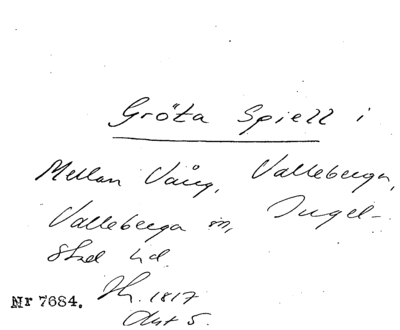 Gröta Spiell i
Mellan Vång, Valleberga,
Valleberga sn, Ingel-
stad hd.
Nr 7684. Sk. 1817
Akt 5.